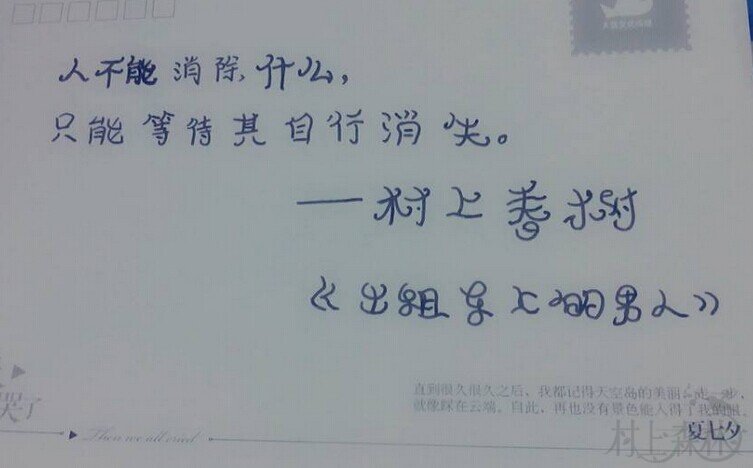 人不能消除什么，
只能等待其自行消失。
——村上春树
《出租车上的男人》
直到很久很久之后，我都记得天空岛的美丽，走一步，
就像踩在云端。自此，再也没有景色能入得了我的眼。
夏七夕
哭了
Then we all cried